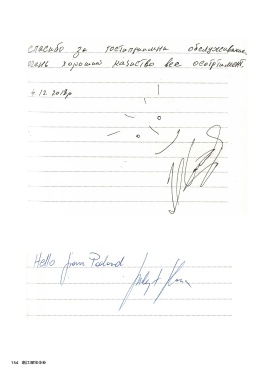 спасибо за гостиприимна обслуживание,
очень хороший качество все осортимент.
4.12 2018р
Hello from Poland
154